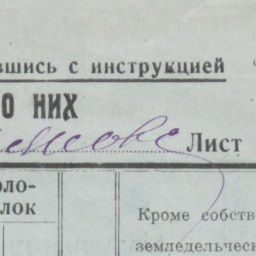 вшись с инструкцией "
о них
Лист
оло-
лок
Кроме собств
земледельческ